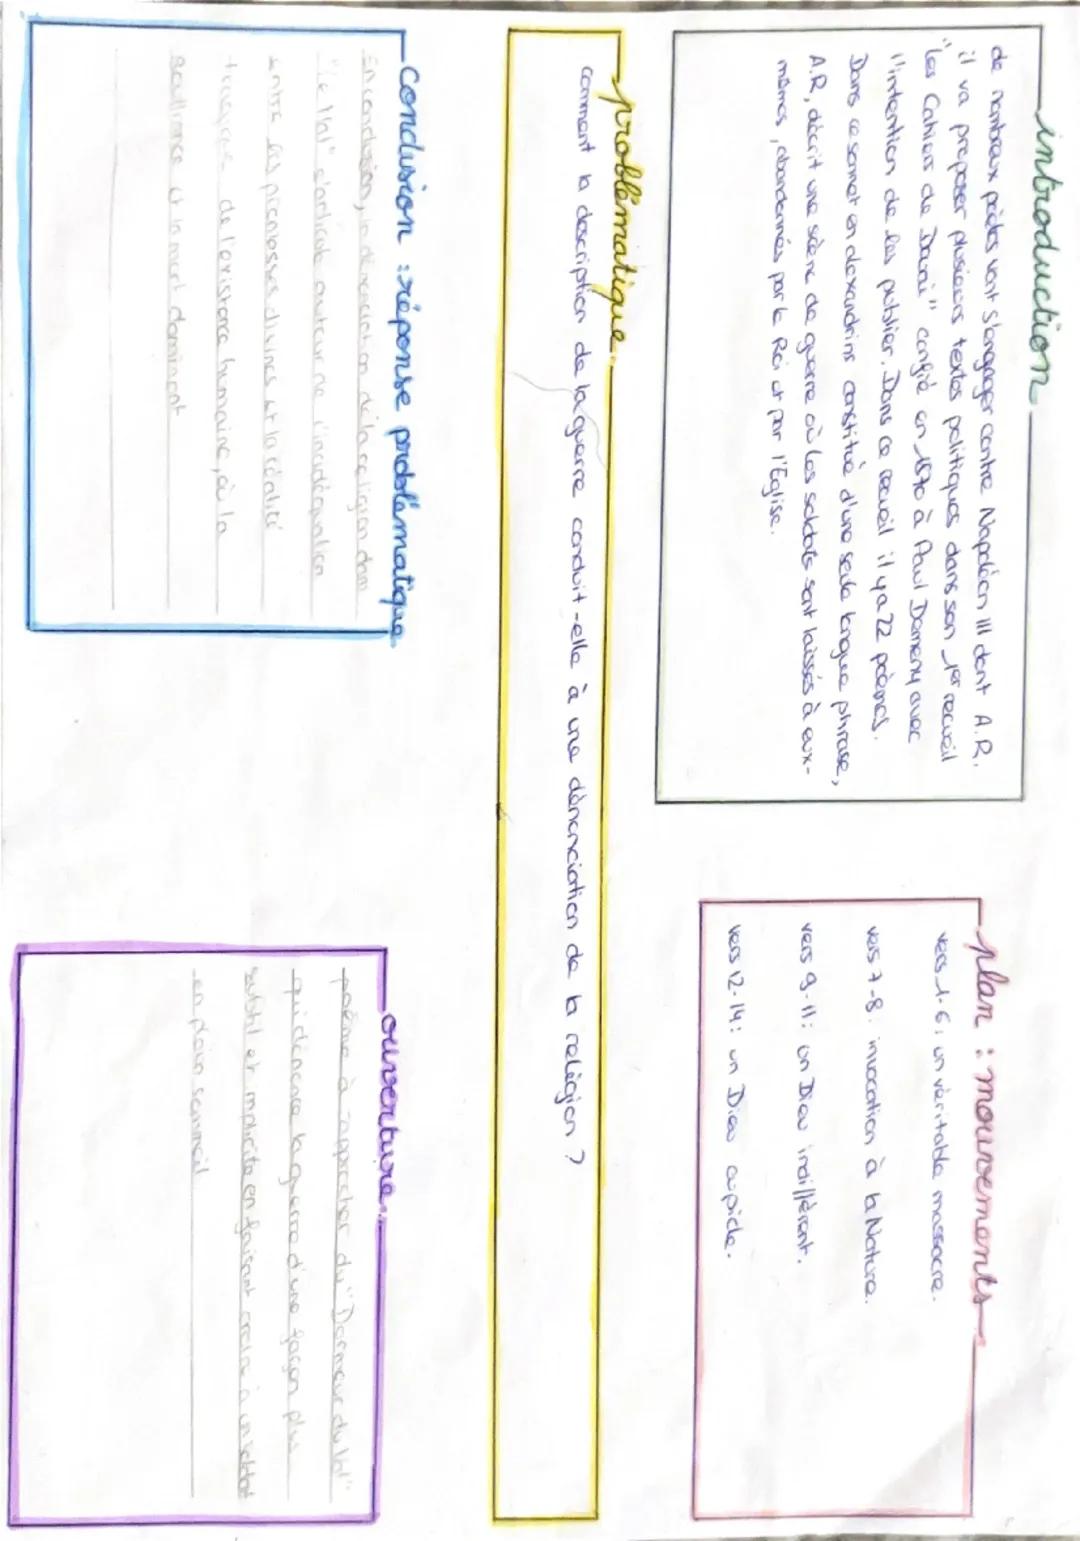 introduction
de nombreux poètes vont s'engager contre Napoléon III dont A.R.
il va proposer plusieurs textes politiques dans son 1er recueil
"les Cahiers de Douai" confié en 1870 à Paul Demeny avec
l'intention de les publier. Dans ce recueil il y a 22 poèmes.
Dans ce sonnet en alexandrins constitué d'une seule longue phrase,
A.R, décrit une scène de guerre où les soldats sont laissés à eux-
mêmes, abandonnés par le Roi et par l'Église.
plan : mouvements
vers 1-6 : un véritable massacre.
vers 7-8 : invocation à la Nature.
vers 9-11 : un Dieu indifférent.
vers 12-14 : un Dieu cupide.
problématique
comment la description de la guerre conduit-elle à une dénonciation de la religion ?
Conclusion : réponse problématique
En conclusion, la dénonciation de la religion dans
"Le Mal" s'articule autour de l'inadéquation
entre les promesses divines et la réalité
tragique de l'existence humaine, où la
souffrance et la mort dominent
ouverture
poème à rapprocher du "Dormeur du Val"
qui dénonce la guerre d'une façon plus
subtil et implicite en faisant croire à un soldat
en plein sommeil